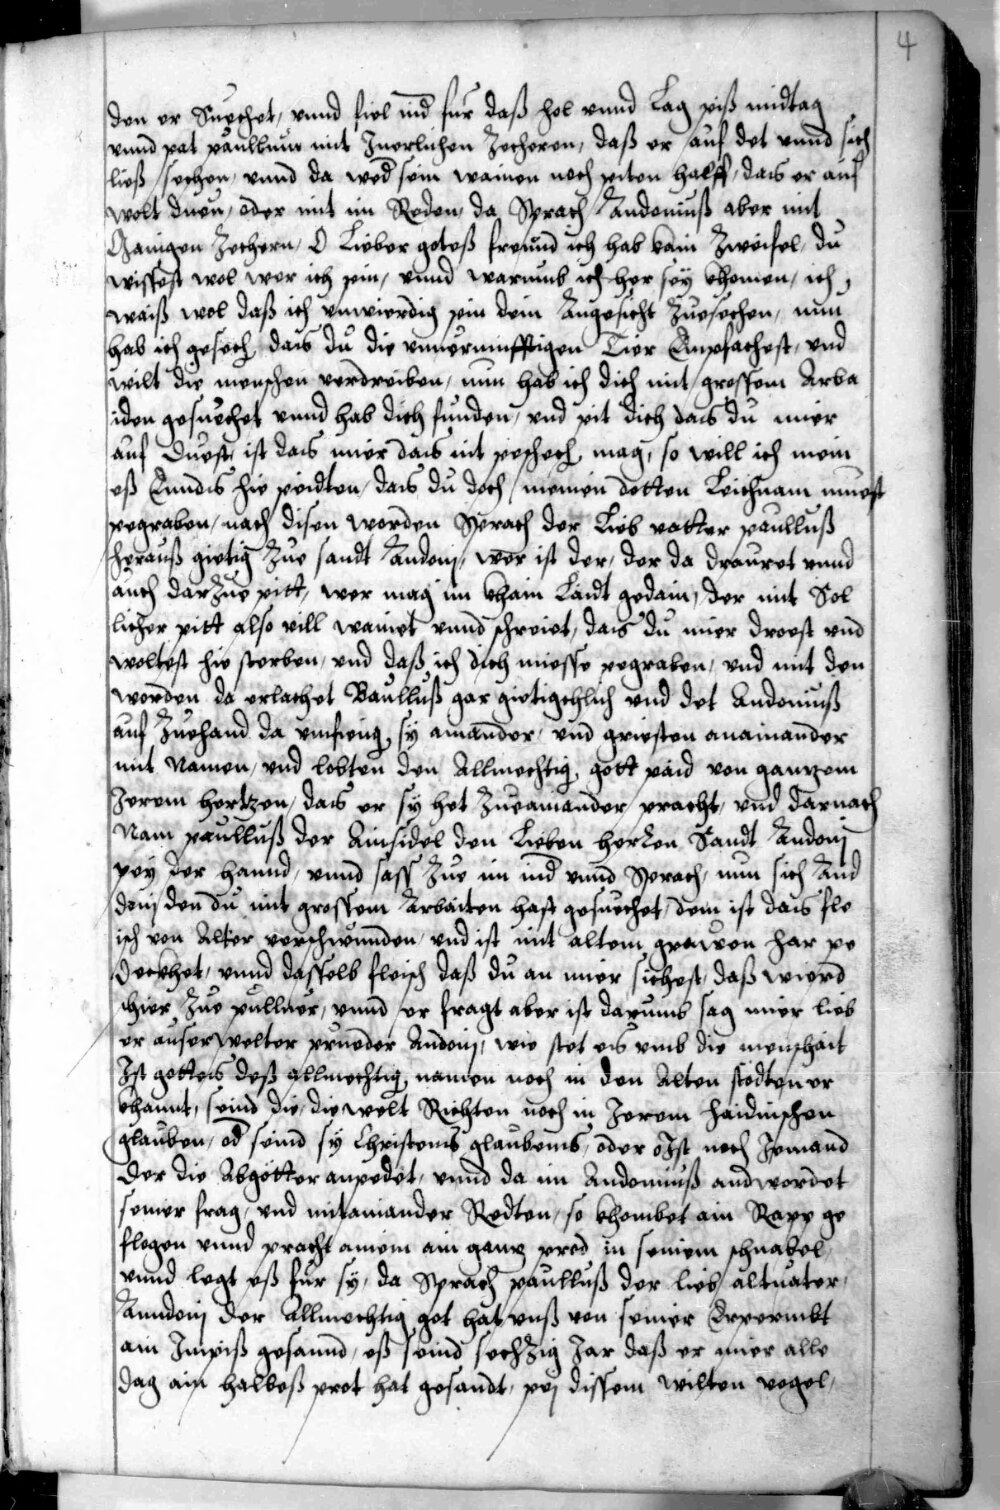 4
den er Suechet, vnnd fiel nid fur daß hol vnnd Lag piß midtag
vnnd pat paulluum mit Inerlichen Zecheren, daß er auf det vnnd sich
ließ sechen, vnnd da wed sein wainen noch piten halff, das er auf
wolt duen, oder mit im Reden, da Sprach Andoniuß aber mit
Hainigen Zechern, O Lieber goteß freund ich hab kain Zweifel, du
wissest wol wer ich pin, vnnd warumb ich her sey khomen, ich
waiß wol daß ich vnwierdig pin dein Angesicht Zuesechen, nun
hab ich gesech, das du die vnuernunfftigen Tier Empfachest, vnd
wilt die menschen verdreiben, nun hab ich dich mit grossem Arba
iden gesuechet vnnd hab dich funden, vnd pit dich das du mier
auf Duest, ist das mier das nit peschech mag, so will ich mein
eß Enndts hie peidten, das du doch meinen dotten Leichnam muest
pegraben, nach disen worden Sprach der Lieb vatter paulluß
herauß gietig Zue sandt Andoni, wer ist der, der da drauret vnnd
auch darZue pitt, wer mag im khain Laidt gedain, der mit Sol
licher pitt also vill wainet vnnd schreiet, das du mier droest vnd
woltest hie sterben, vnd daß ich dich miesse pegraben, vnd mit den
worden da erlachet Paulluß gar gietigchlich vnd det Andoniuß
auf Zuehand da vmfieng sy ainander, vnd griesten anainander
mit Namen, vnd lobten den Allmechtig gott paid von gantzem
Jerem hertzen, das er sy het Zueainander pracht, vnd darnach
Nam paulluß der Ainsidel den Lieben herren Sandt Andoni
pey der hannd, vnnd sass Zue im nid vnnd Sprach, nun sich And
doni den du mit grossem Arbaiten hast gesuechet, dem ist das fle
isch von Alter verschwunden, vnd ist mit altem grawen har pe
deckhet, vnnd dasselb fleisch daß du an mier sichest, daß wierd
schier Zue pulluer, vnnd er fragt aber ist darumb sag mier lieb
er auserwelter prueder Andoni, wie stet es vmb die menschait
Ist gottes deß allmechtig namen noch in den Alten stedten er
khannt, seind die, die welt Richten noch in Jerem haidnischen
glauben, od seind sy Christenns glaubenns, oder Ist noch Jemand
der die Abgötter anpedet, vnnd da im Andoniuß andwordet
seiner frag, vnd mitainander Redten, so khombet ain Rapp ge
flogen vnnd pracht ainem ain gantz prod in seinem schnabel,
vnnd legt eß fur sy, da Sprach paulluß der lieb altuater,
Anndoni der Allmechtig got hat vnß von seiner Erpermbt
ain Impiß gesannd, eß seind sechZig Jar daß er mier alle
dag ain halbeß prot hat gesandt, pei dissem wilten vogel,